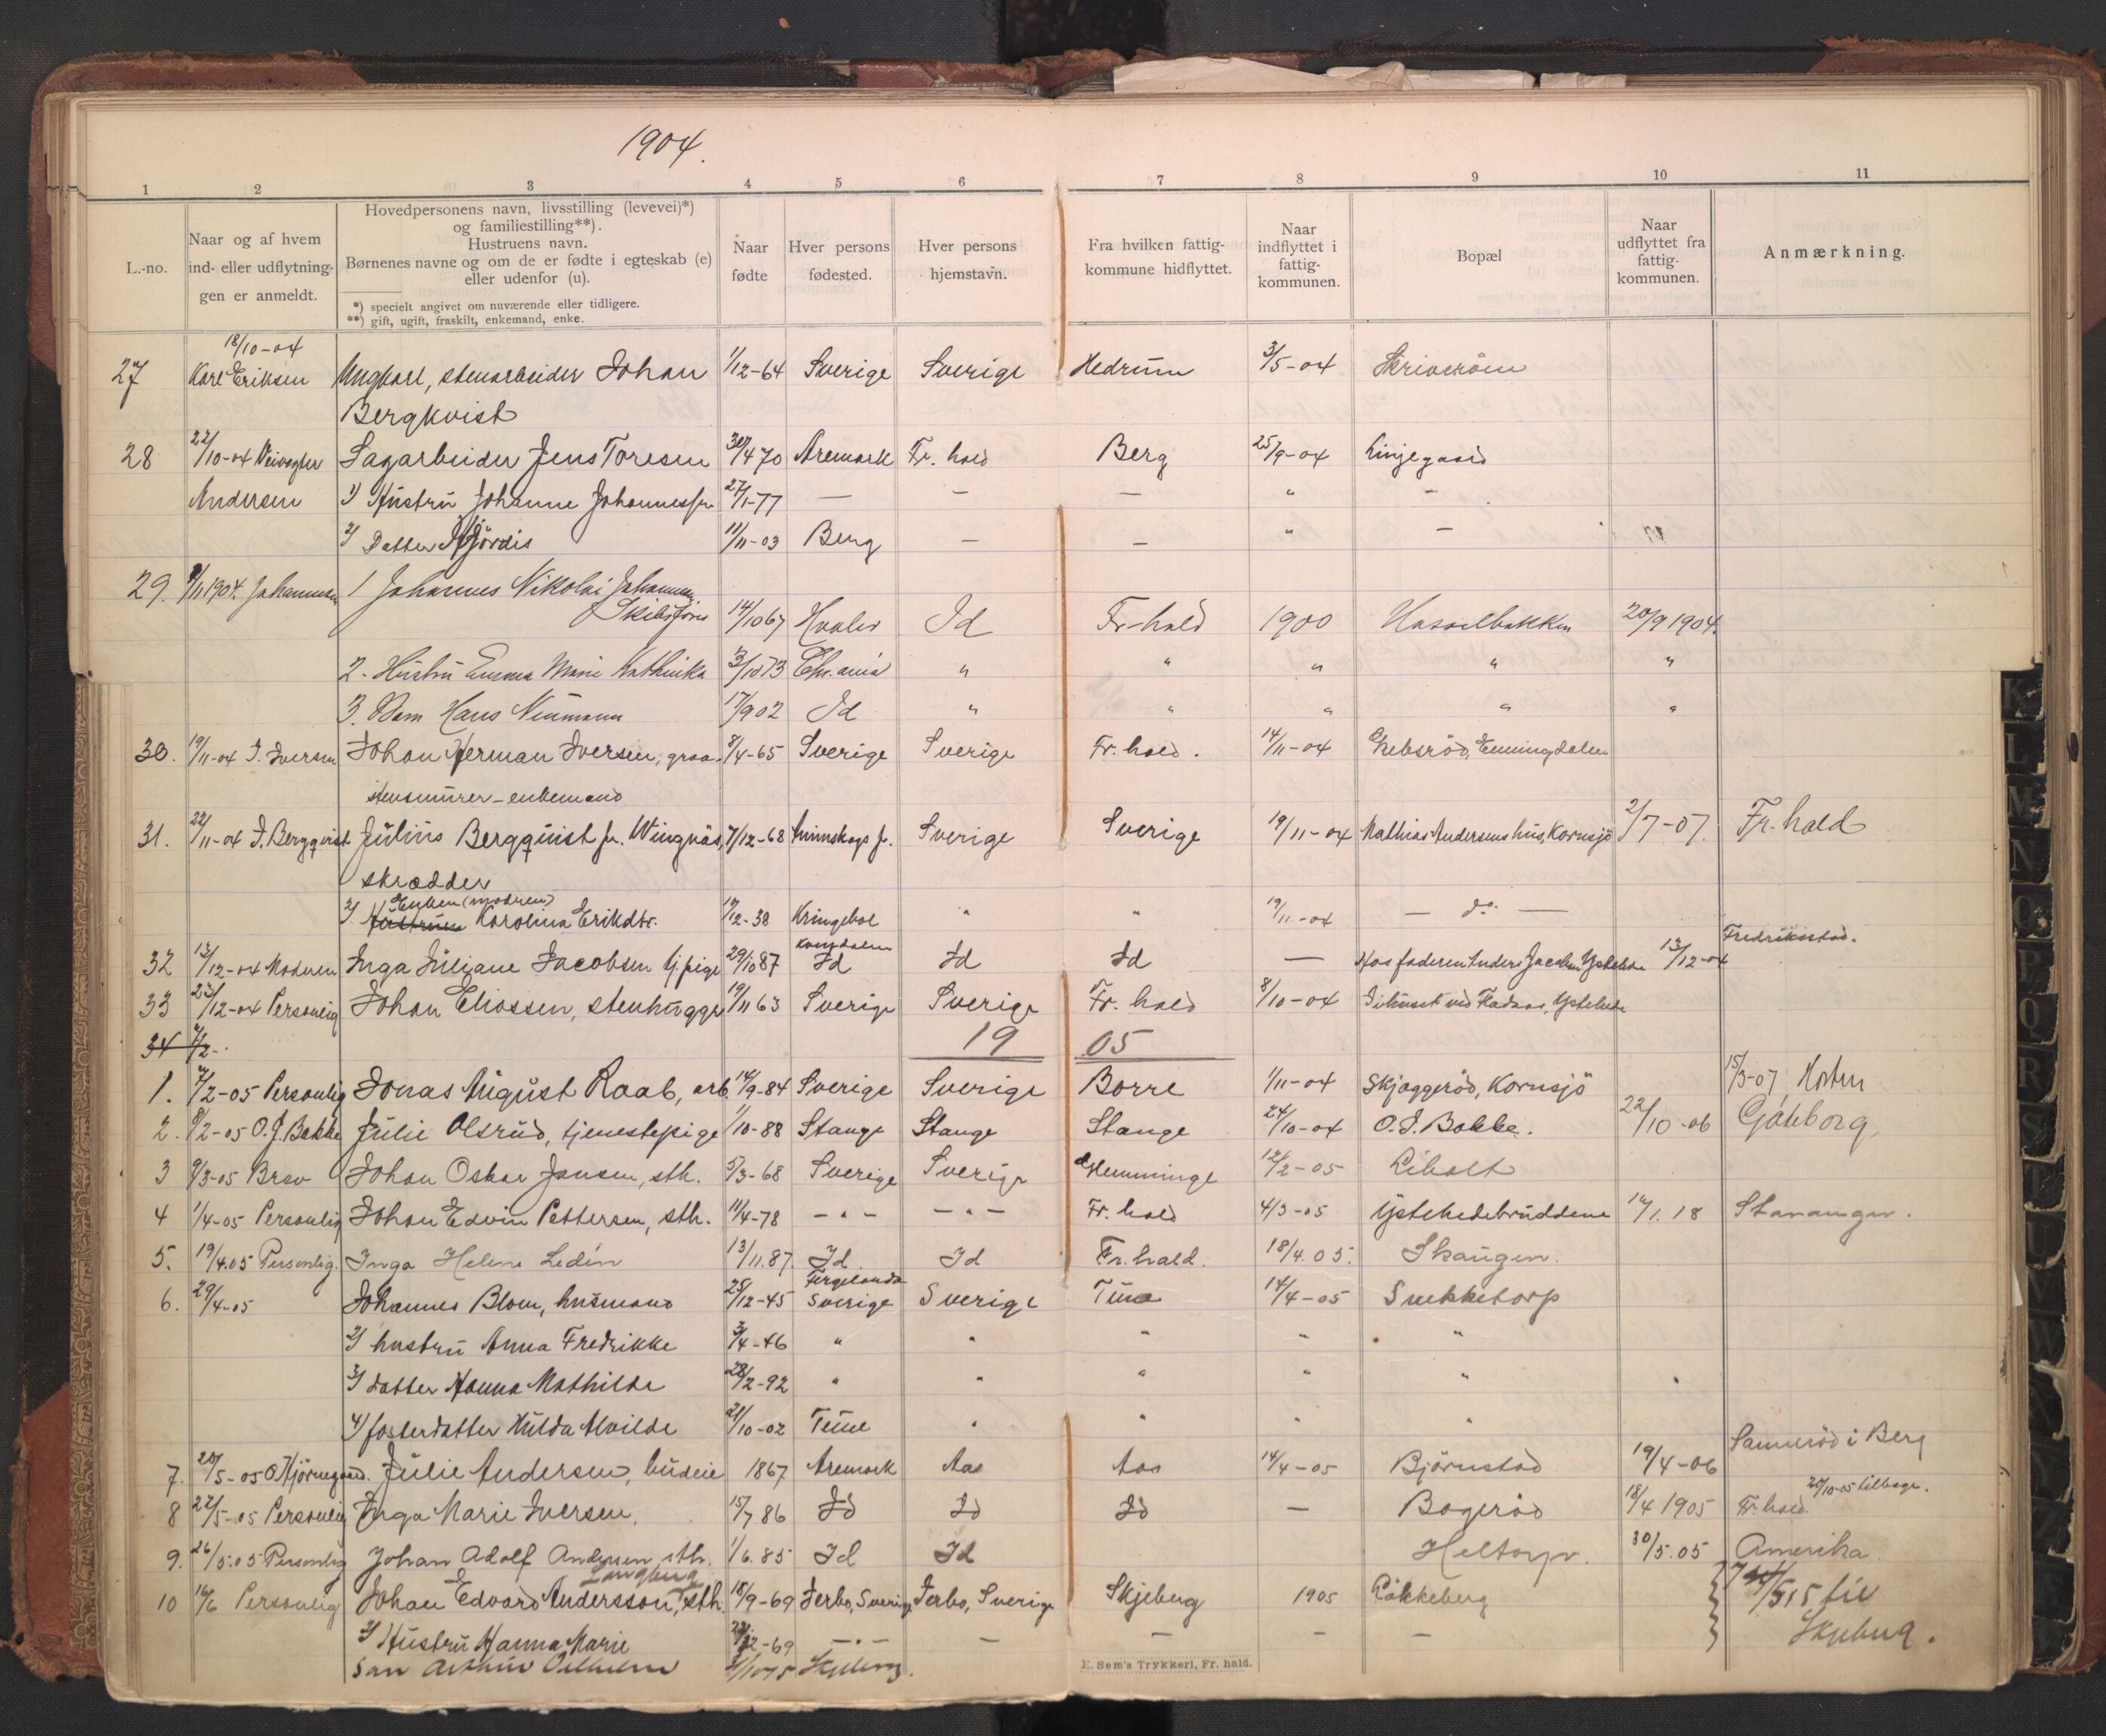 1904.
1 2 3 4 5 6 7 8 9 10 11
L.-no.
Naar og af hvem ind- eller udflytningen er anmeldt.
Hovedpersonens navn, livsstilling (levevei)*) og familiestilling**).
Hustruens navn.
Børnenes navne og om de er fødte i egteskab (e) eller udenfor (u).
*) specielt angivet om nuværende eller tidligere.
**) gift, ugift, fraskilt, enkemand, enke.
Naar fødte
Hver persons fødested.
Hver persons hjemstavn.
Fra hvilken fattigkommune hidflyttet.
Naar indflyttet i fattigkommunen.
Bopæl
Naar udflyttet fra fattigkommunen.
Anmærkning.
18/10-04
27 Karl Eriksen Ungkarl, stenarbeider Johan 1/12-64 Sverige Sverige Hedrum 3/5-04
Bergkvist
28 22/10-04 Sagarbeider Jens Toresen 30/4 70 Aremark Fr. hald Berg 25/9-04 Linjegaard
Andersen 1) Hustru Johanne 27/1-77 — — — " —
2) Datter Hjördis 11/11-03 Berg — — " —
29. 9/11 1904. Johannesen 1 Johannes Nikolai Johannesen
14/10 67 Hvaler Id Fr-hald 1900 Hasselbakken 20/9 1904.
2. Hustru Emma Marie Kathinka 3/10 73 Chr.ania " " " " "
3. Barn Hans Neumann 17/9 02 Id " " " " "
30. 19/11-04 J. Iversen Johan Herman Iversen, graa- 8/4-65 Sverige Sverige Fr. hald. 14/11-04 Enningdalen
stensmurer - enkemand
31. 22/11-04 J. Bergqvist Julius Bergquist fr. Wingnäs, 7/12-68 Sverige Sverige 19/11-04 Mathias Andersens hus, Kornsjö 2/7-07. Fr. hald
skrædder
Enken (moderen)
2) Hustruen Karolina Eriksdtr. 12-38 " " 19/11-04 — do —
Fredriksstad.
32 13/12-04 Moderen Inga Juliane Jacobsen tj.pige 29/10 87 Id Id Id — Hos faderen Anders Jacobsen Ystehede 13/12-04
33 23/12-04 Personlig Johan Eliassen, stenhugger 19/11 63 Sverige Sverige Fr. hald 8/10-04 Ystehede
34 7/2-
19 05
1. 7/2-05 Personlig Jonas August Raab, arb. 14/9-84 Sverige Sverige Borre 1/11-04 Skjaggeröd, Kornsjö 15/3-07 Horten
2. 8/2-05 O.J. Bakke Julie Olsrud, tjenestepige 1/10-88 Stange Stange Stange 24/10-04 O.J. Bakke. 22/10-06 Göteborg
3 9/3-05 Brev Johan Oskar Jansen, sth. 5/3-68 Sverige Sverige Hemminge 12/2-05 Liholt
4 1/4-05 Personlig Johan Edvin Pettersen, sth. 11/4-78 — " — — " — Fr. hald 4/3-05 Ystehedebruddene 14/1.18 Stavanger.
5. 19/4.05 Personlig. Inga Helene Ledin 13/11.87. Id Id Fr. hald. 18/4.05. Skaugen.
Fergelanda
6. 29/4-05 Johannes Blom, husmand 25/12-45 Sverige Sverige Tune 14/4-05 Snekketorp
2) hustru Anna Fredrikke 3/4-46 " " " " "
3) datter Hanna Mathilde 28/2-92 " " " " "
4) fosterdatter Hulda Alvilde 21/10-02 Tune " " " "
Sanneröd i Berg
7. 20/5-05 Julie Andersen, budeie 1867 Aremark Aas Aas 14/4-05 Björnstad 19/4-06
20/10-05 tilbage.
8 22/5-05 Personlig Inga Marie Iversen. 15/7 86 Id Id Id — Bageröd 18/4 1905 Fr. hald
9. 26/5.05 Personlig Johan Adolf Andersen, sth. 1/6.85 Id Id Heltorp. 30/5.05 Amerika
Langberg
10 16/6 Personlig Johan Edvard Andersson, sth. 18/9-69 Jerbo, Sverige Jerbo, Sverige Skjeberg 1905 Lökkeberg 5 15 til
2) Hustru Hanna Marie 12-69 — " — — — — — Skjeberg.
Søn Arthur Vilhelm Skjeberg.
E. Sem's Trykkeri, Fr. hald.
K L M N O Q R S